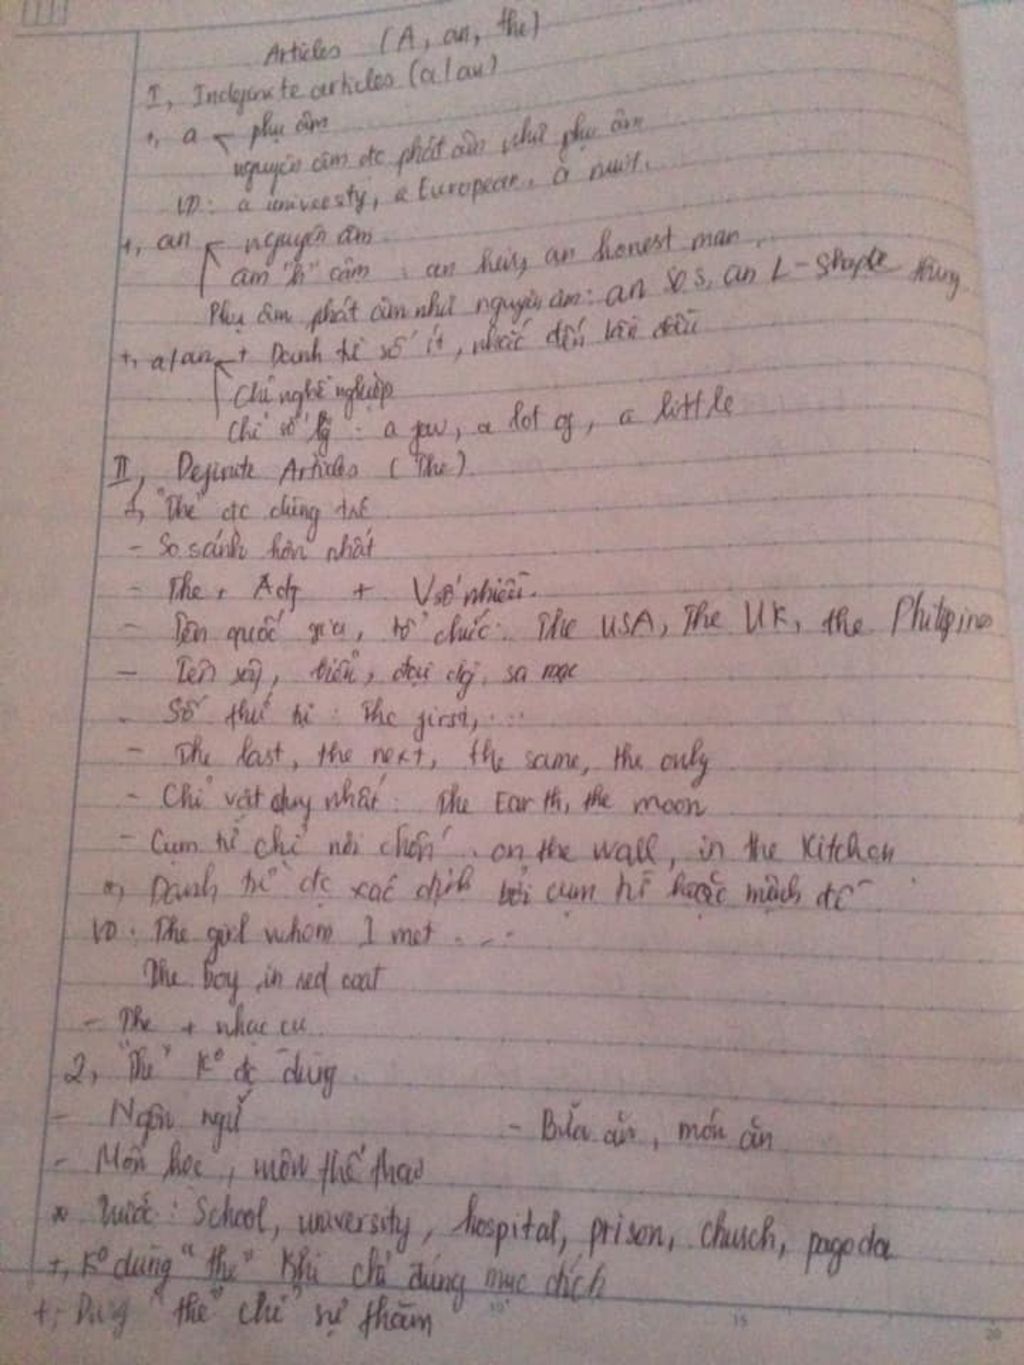 Articles (A, an, the)
I, Indefinite articles (a/an)
+, a phụ âm
nguyên âm đc phát âm như phụ âm
VD: a university, a European, a
+, an nguyên âm
âm "h" câm : an heir, an honest man
Phụ âm phát âm như nguyên âm: an SOS, an L-shaple
+, a/an + Danh từ số ít, nhắc đến lần đầu
Chỉ nghề nghiệp
chỉ số lg : a few, a lot of, a little
II, Definite Articles (The)
1, "The" đc dùng trc
- So sánh hơn nhất
- The + Adj + V số nhiều.
- Tên quốc gia, tổ chức: The USA, The UK, the Philipines
- Tên sg, biển, đại dg, sa mạc
- Số thứ tự: The first, ...
- The last, the next, the same, the only
- Chỉ vật duy nhất: The Earth, the moon
- Cụm từ chỉ nơi chốn: on the wall, in the Kitchen
*, Danh từ đc xác định bởi cụm từ hoặc mệnh đề
VD: The girl whom I met ...
The boy in red coat
- The + nhạc cụ
2, "The" K° đc dùng
- Ngôn ngữ - Bữa ăn, món ăn
- Môn học, môn thể thao
* trước: School, university, hospital, prison, church, pagoda
+, K° dùng "the" khi chỉ đúng mục đích
+, Dùng "the" chỉ sự thăm